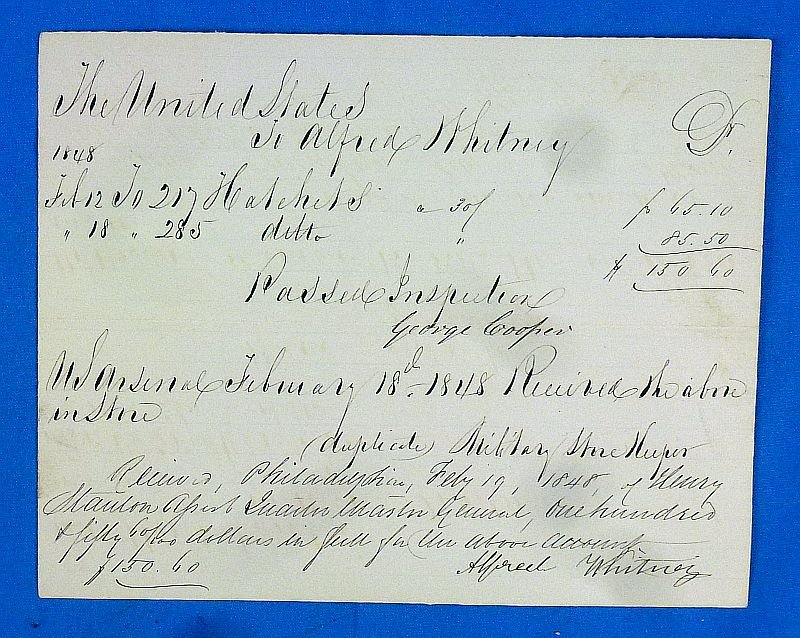 The United States
To Alfred Whitney Dr.
1848
Feb 12 To 217 Hatchets a 30/ $ 65.10
" 18 " 285 ditto " 85.50
$ 150 60
Passed Inspection
George Cooper
US Arsenal February 18th 1848 Received the above
in Store
(duplicate) Military Store Keeper
Received, Philadelphia, Feby 19, 1848, of Henry
Stanton Assist Quarter Master General, One hundred
& fifty 60/100 dollars in full for the above account
$150.60 Alfred Whitney